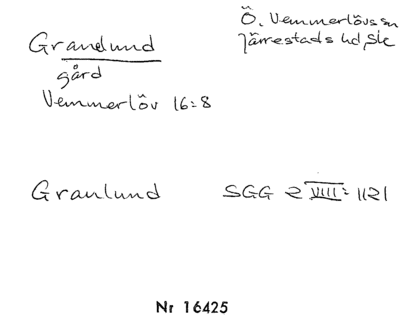 Ö. Vemmerlövs sn
Granelund
Järrestads hd, Sk
gård
Vemmerlöv 16:8
Granlund SGG 2 VIII: 1121
Nr 16425